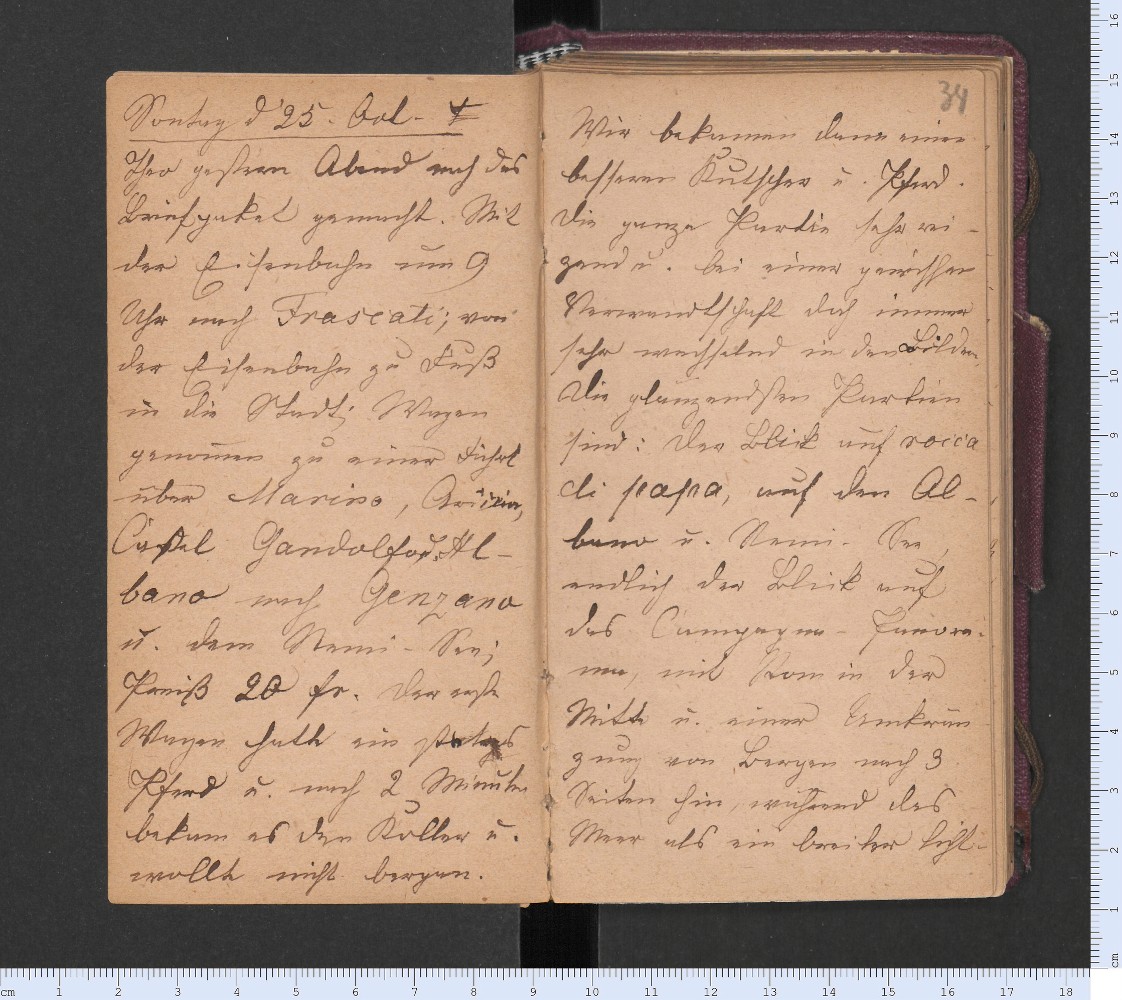 Sontag d 25. Oct.
Theo gestern Abend noch das
Briefpaket gemacht. Mit
der Eisenbahn um 9
Uhr nach Frascati; von
der Eisenbahn zu Fuß
in die Stadt; Wagen
genommen zu einer Fahrt
über Marino, Aricia,
Castel Gandolfo u. Al-
bano nach Genzano
u. dem Nemi-See;
Preiß 20 fr. Der erste
Wagen hatte ein
Pferd u. nach 2 Minuten
bekam es den Koller u.
wollte nicht bergan.
34
Wir bekamen dann einen
besseren Kutscher u. Pferd.
Die ganze Partie sehr rei-
zend u. bei einer gewissen
Verwandtschaft doch immer
sehr wechselnd in den Bildern.
Die glänzendsten Partien
sind: Der Blick auf rocca
di papa, auf den Al-
bano u. Nemi-See,
endlich der Blick auf
das Campagna-Panora-
ma, mit Rom in der
Mitte u. einer Umkrän-
zung von Bergen nach 3
Seiten hin, während das
Meer als ein breiter licht-